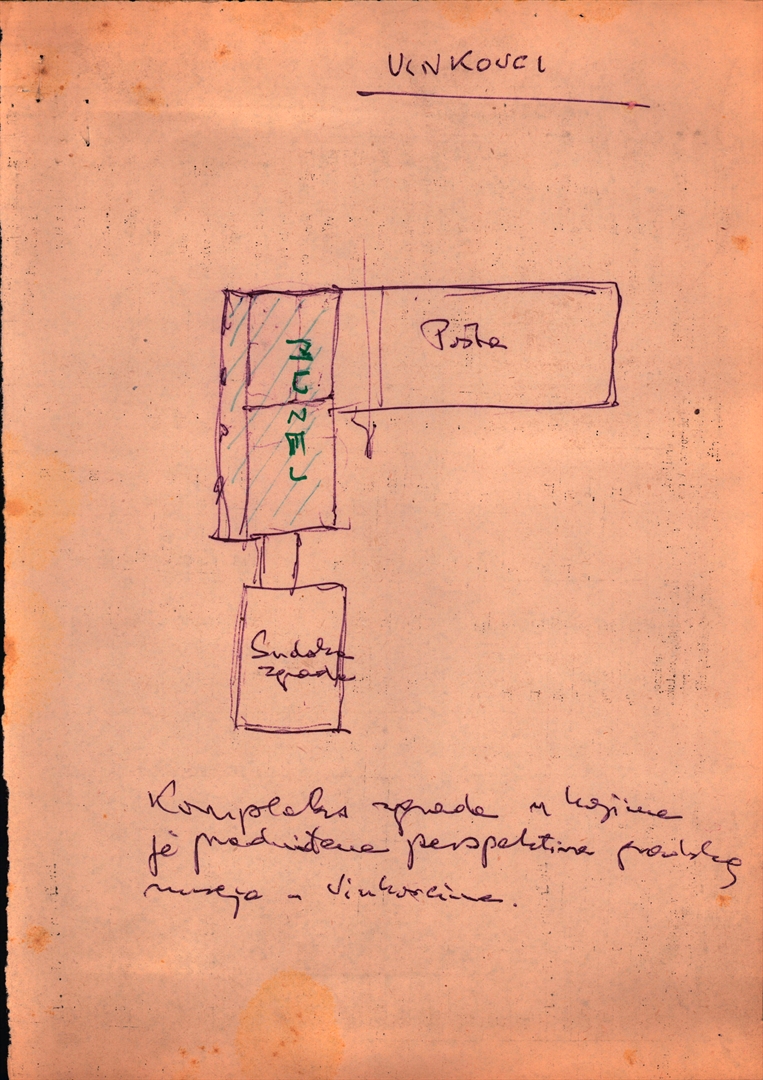 VINKOVCI
Pošta
MUZEJ
Sudska
zgrada
Kompleks zgrada u kojima
je predviđena perspektiva gradskog
muzeja u Vinkovcima.